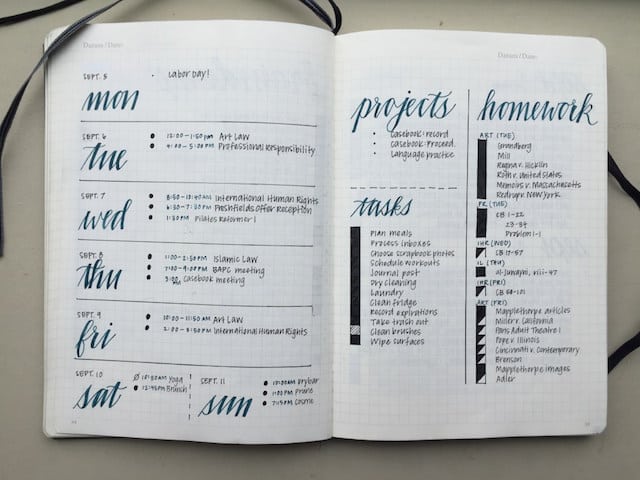 Datum / Date:
SEPT. 5
Labor Day!
mon
SEPT. 6
12:00-1:50 PM Art Law
4:00-5:00 PM Professional Responsibility
tue
SEPT. 7
8:50-10:40 AM International Human Rights
6:30-7:30 PM Freshfields Offer Reception
PM Pilates Reformer I
wed
SEPT. 8
1:00-2:50 PM Islamic Law
7:00-9:00 PM BAPC meeting
PM Casebook meeting
thu
SEPT. 9
10:00-11:50 AM Art Law
2:00-3:50 PM International Human Rights
fri
SEPT. 10
10:30 AM Yoga
12:45 PM Brunch
sat
SEPT. 11
10:00 AM Drybar
1:00 PM Prune
7:15 PM Cosme
sun
Datum / Date:
projects
Casebook: record
Casebook: Proceed.
Language practice
tasks
Plan meals
Process inboxes
Choose scrapbook photos
Schedule workouts
Journal post
Dry cleaning
Laundry
Clean fridge
Record expirations
Take trash out
Clean brushes
Wipe surfaces
homework
ART (TUE)
Grundberg
Mill
Regina v. Hicklin
Roth v. United States
Memoirs v. Massachusetts
Redrup v. New York
PR (TUE)
CB 1-22
23-34
Problem 1-1
IHR (WED)
CB 17-57
IL (THU)
al-Junayni, viii-47
IHR (FRI)
CB 58-101
ART (FRI)
Mapplethorpe articles
Miller v. California
Paris Adult Theatre I
Pope v. Illinois
Cincinnati v. Contemporary
Brenson
Mapplethorpe images
Adler